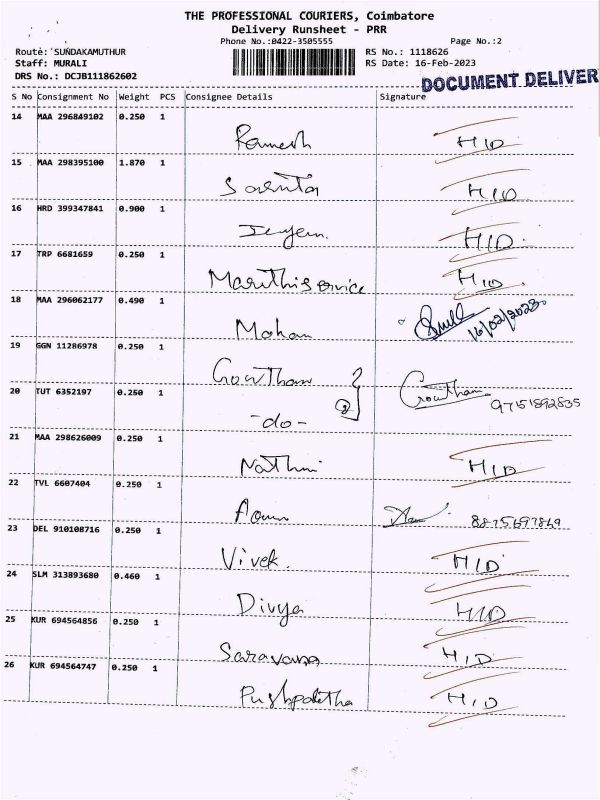 THE PROFESSIONAL COURIERS, Coimbatore
Delivery Runsheet - PRR
Phone No.:0422-3505555 Page No.:2
Route: SUNDAKAMUTHUR RS No.: 1118626
Staff: MURALI RS Date: 16-Feb-2023
DRS No.: DCJB111862602
DOCUMENT DELIVER
S No Consignment No Weight PCS Consignee Details Signature
14 MAA 296849102 0.250 1
Ramesh H/D
15 MAA 298395100 1.870 1
H/D
16 HRD 399347841 0.900 1
H/D
17 TRP 6681659 0.250 1
Maruthi service H/D
18 MAA 296062177 0.490 1
Mohan 16/02/2023
19 GGN 11286978 0.250 1
Gowtham Gowtham
20 TUT 6352197 0.250 1 2
-do-
21 MAA 298626009 0.250 1
H/D
22 TVL 6607404 0.250 1
23 DEL 910108716 0.250 1
Vivek. H/D
24 SLM 313893680 0.460 1
Divya H/D
25 KUR 694564856 0.250 1
Saravana H/D
26 KUR 694564747 0.250 1
H/D